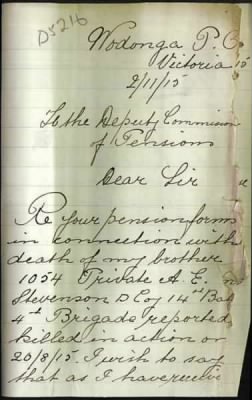 D5216
Wodonga P.O
Victoria
2/11/15
To the Deputy Commission
of Pensions
Dear Sir
Re your pension forms
in connection with
death of my brother
1054 Private A. E.
Stevenson D Coy 14th Bat
4th Brigade reported
killed in action on
20/8/15. I wish to say
that as I have receive